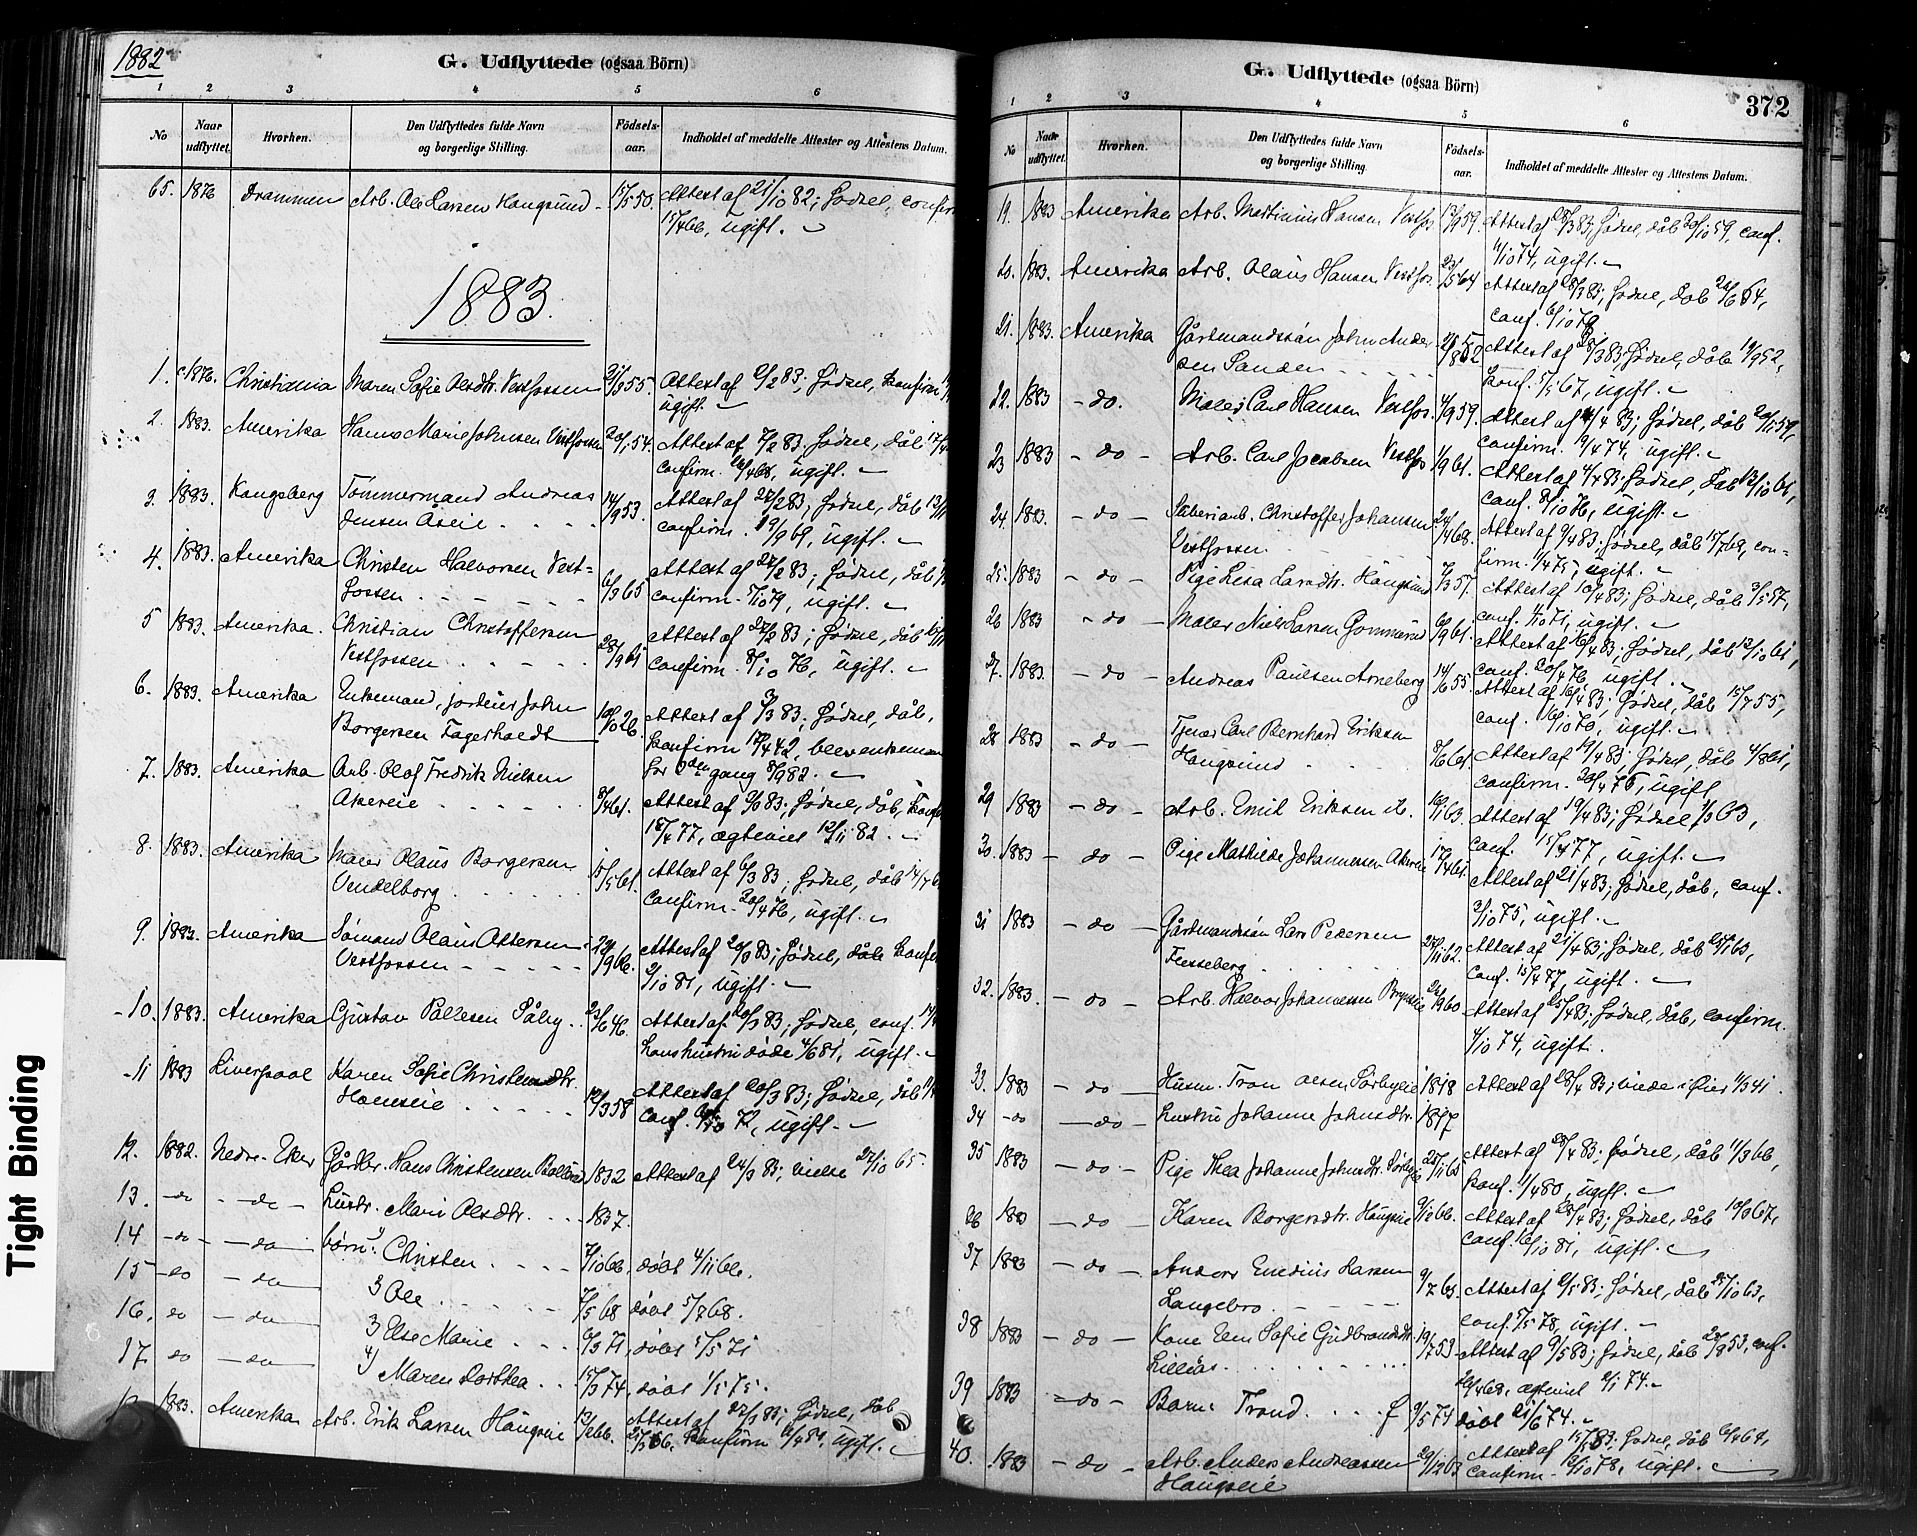 1882
G. Udflyttede (ogsaa Börn)
1 2 3 4 5 6
No
Naar udflyttet.
Hvorhen.
Den Udflyttedes fulde Navn og borgerlige Stilling.
Födsels-aar.
Indholdet af meddelte Attester og Attestens Datum.
65. 1876 Drammen Arb. Ole Larsen Haugsund 15/5 50. Attest af 21/10 82; Födsel, confirm
15/4 66, ugift.
1883.
1. 1876. Christiania Maren Sofie Olsdtr. Vestfossen 55. Attest af 6/2 83; Födsel, konfirm
ugift.
2. 1883. Amerika Hanna Marie Johnsen Vestfossen 20/1 54. Attest af 7/2 83, Födsel, dåb
confirm. ugift.
3. 1883. Kongsberg Tömmermand Andreas 14/9 53. Attest af 27/2 83; Födsel, dåb
Jensen Åseie confirm. 19/9 69, ugift.
4. 1883. Amerika Christen Halvorsen Vest- Attest af 27/2 83; Födsel, dåb
fossen 6/3 65 confirm. 5/10 79, ugift.
5 1883. Amerika. Christian Christoffersen Attest af 27/2 83; Födsel, dåb
Vestfossen 28/9 61 confirm. 8/10 76, ugift.
6. 1883. Amerika Enkemand, John Attest af 3/3 83; Födsel, dåb,
Borgersen Fagerholdt 26. konfirm 42, blev enkemand
7. 1883. Amerika Arb. Olaf Fredrik Nielsen for gang 8/9 82.
Akereie 8/4 61. Attest af 83; Födsel, dåb,
15/4 77, ægteviet 12/11 82.
8. 1883. Amerika Maler Olaus Borgersen 15/5 61. Attest af 6/3 83; Födsel, dåb 14/7
Vendelborg confirm. 30/4 76, ugift.
9. 1883. Amerika Sömand Olaus Ottersen Attest af 20/3 83; Födsel, dåb
Vestfossen 2/10 81, ugift.
10. 1883. Amerika Gustav Pallesen 23/6 46. Attest af 20/3 83; Födsel, conf.
hustru döde 4/6 81, ugift.
11 1883 Liverpool Karen Sofie Christensdtr. Attest af 20/3 83; Födsel, dåb
12/3 58 conf. 72, ugift.
12. 1882. Nedre-Eker Gårdbr. Hans Christensen 1832 Attest af 24/3 83; vielse 27/10 65.
13. do do Hustr. Marie Olsdtr. 1837.
14 do do börn: 1) Christen 7/10 66, döbt 4/11 66.
15 do do Ole 7/5 68 döbt 5/7 68.
16. do do 3 Else Marie 6/3 71, döbt 5/5 71
17. do do 4) Maren Dorthea 15/3 74, döbt 1/5 75.
1883. Amerika Arb. Erik Larsen Haugseie Attest af 27/3 83; Födsel, dåb
66. konfirm ugift.
Tight Binding
G. Udflyttede (ogsaa Börn)
372
1 2 3 4 5 6
No
Naar udflyttet.
Hvorhen.
Den Udflyttedes fulde Navn og borgerlige Stilling.
Födsels-aar.
Indholdet af meddelte Attester og Attestens Datum.
19. 1883 Amerika Arb. Martinius Hansen Vestfos. 59. Attest af 28/3 83; Födsel, dåb 30/10 59, conf.
11/10 74, ugift.
20. 1883. Amerika Arb. Olaus Hansen Vestfos. 23/5 64 Attest af 28/3 83; Födsel, dåb 26/6 64,
conf. 6/10 78
21. 1883. Amerika Gårdmandssön John Ander- 52 Attest af 28/3 83, Födsel, dåb 19/9 52,
sen Sanden konf. 67, ugift.
22. 1883 do. Maler Carl Hansen Vestfos. 4/9 59. Attest af 4/4 83; Födsel, dåb
confirm. 19/4 74, ugift.
23 1883 do Arb. Carl Jacobsen Vestfos 1/9 61. Attest af 4/4 83; Födsel, dåb 13/10 61,
conf. 8/10 76, ugift.
24. 1883. do Christoffer Johansen 24/4 68. Attest af 9/4 83; Födsel, dåb con-
Vestfossen firm. 11/4 75, ugift.
25. 1883 do Pige Lisa Larsdtr. Haugsund 7/3 57. Attest af 10/4 83; Födsel, dåb 3/5 57,
conf. 1/10 71, ugift.
26 1883 do Maler Niels Larsen Gommerud 6/9 61. Attest af 16/4 83; Födsel, dåb 13/10 61,
conf. 30/4 76, ugift.
27. 1883. do Andreas Paulsen Arneberg 14/6 55 Attest af 16/4 83, Födsel, dåb 15/7 55,
conf. 16/10 70, ugift.
28 1883 do Tjener Carl Bernhard Eriksen 8/6 61. Attest af 19/4 83; Födsel, dåb 4/8 61,
Haugsund confirm. 30/4 76, ugift
29 1883 do Arb. Emil Eriksen 63. Attest af 19/4 83; Födsel 63,
conf. 15/4 77, ugift.
30. 1883 do Pige Mathilde Johannessen Akereie 17/4 61. Attest af 21/4 83; Födsel, dåb, conf.
3/10 75, ugift.
31 1883 do Gårdmandssön Lars Pedersen 62. Attest af 21/4 83; Födsel, dåb 63,
Flesseberg conf. 15/4 77, ugift.
32. 1883. do Arb. Halvor Johannessen 60 Attest af 25/4 83; Födsel, dåb, confirm.
4/10 74, ugift.
33. 1883 do Husm. Tron Olsen Sörbyeie 1818 Attest af 28/4 83; viede i Öier 1/3 41.
34 do do hustru Johanne Johnsdtr. 1817
35 1883 do Pige Thea Johanne Johnsdtr. 65 Attest af 28/4 83; Födsel, dåb 11/3 66,
konf. 11/4 80, ugift.
36 1883 do Karen Borgersdtr. Haugseie 9/12 66. Attest af 28/4 83; Födsel, dåb 67,
conf. 16/10 81, ugift.
37 1883 do Anders Enedius Larsen 9/7 63. Attest af 9/5 83; Födsel, dåb 63,
Langebro conf. 5/5 78, ugift.
38 1883 do Kone Sofie Gudbrandsdtr. 19/7 53 Attest af 9/5 83; Födsel, dåb 53, conf.
Lilleås 68, ægteviet 6/1 74.
39 1883 do Barn: Trond 9/5 74 döbt 21/6 74.
40. 1883 do Arb. Anders Andreassen 29/12 63 Attest af 15/5 83; Födsel, dåb 64,
Haugseie confirm. 13/10 78, ugift.